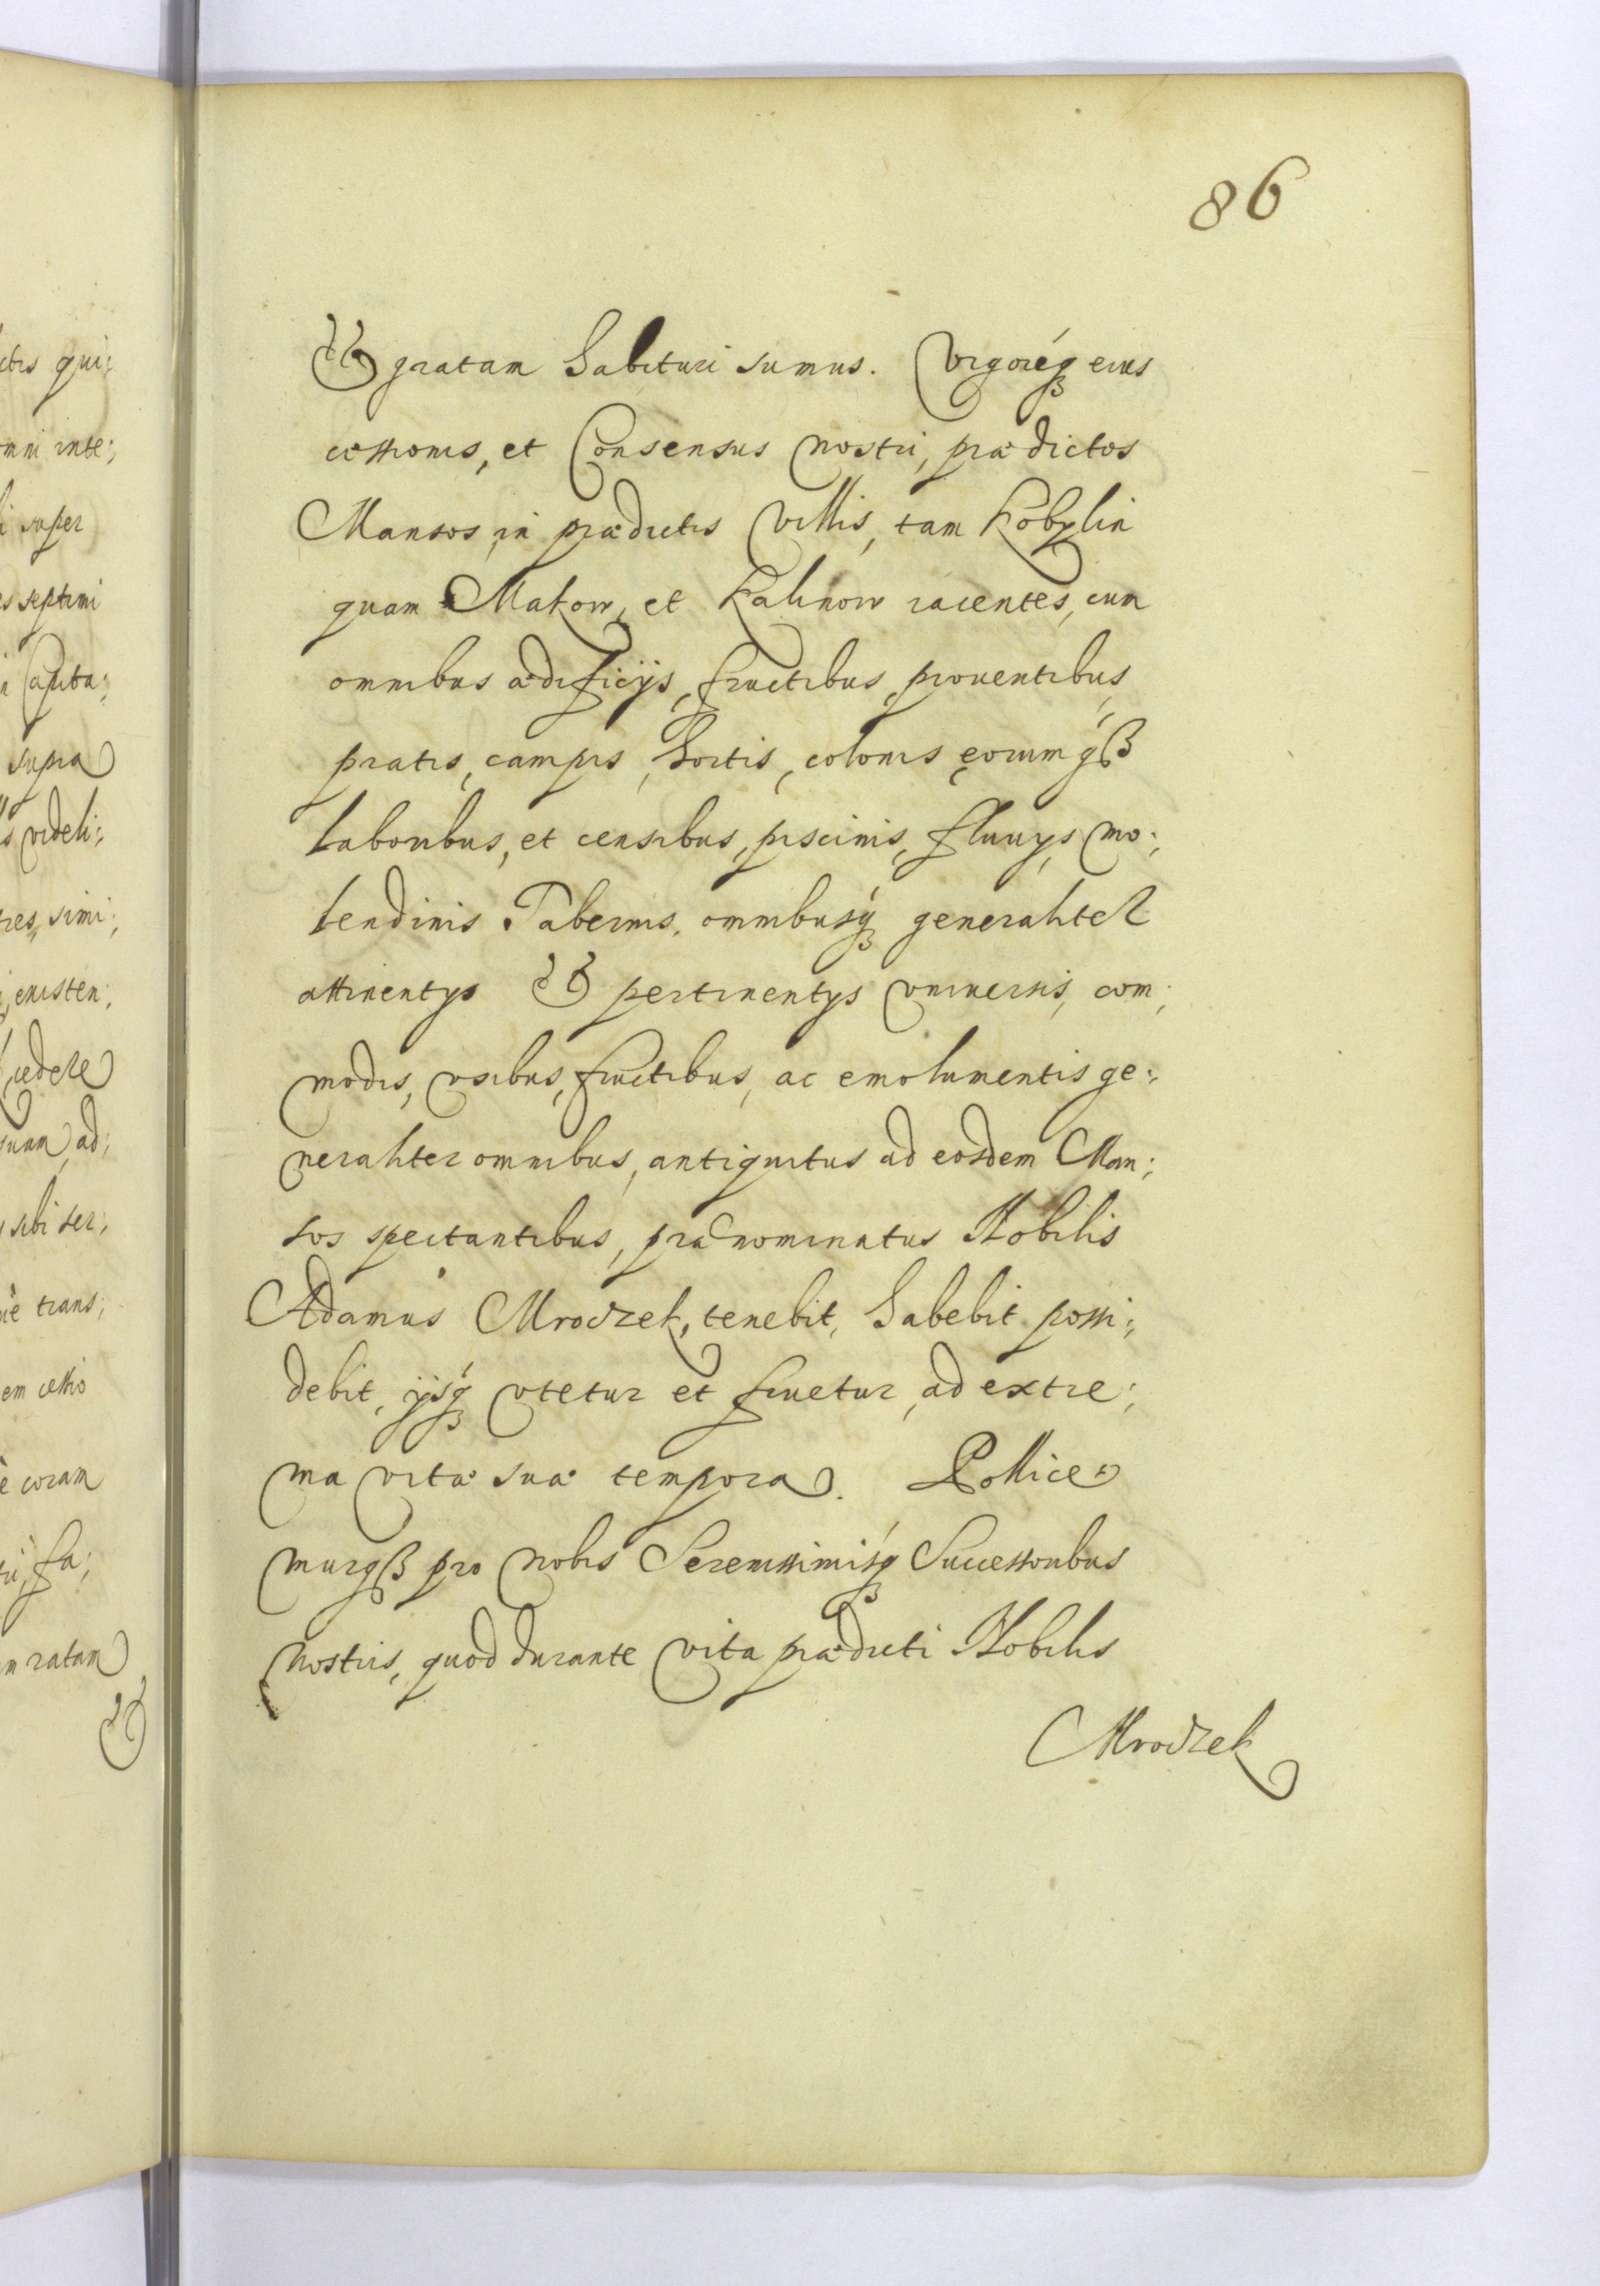 86
et gratam habituri sumus. Vigoréq₃ eius
cessionis, et Consensus nostri, prædictos
Mansos, in prædictis Villis, tam Kobylin
quam Makow, et Kalinow iacentes, cum
omnibus ædificijs, fructibus, prouentibus,
pratis, campis, hortis, colonis eorumq́₃
laboribus, et censibus, piscinis, fluuijs, mo:,
lendinis Tabernis, omnibusq́₃ generaliter
attinentijs et pertinentijs vniuersis, com:,
modis, vsibus, fructibus, ac emolumentis ge:,
neraliter omnibus, antiquitus ad eosdem Man:,
sos spectantibus, prænominatus Nobilis
Adamus Mroczek, tenebit, habebit possi:,
debit, ijsq́₃ vtetur et fruetur, ad extre:,
ma vitæ suæ tempora. Pollice
murq₃ pro nobis Serenissimisq́₃ Successoribus
nostris, quod durante vita prædicti Nobilis
Mroczek
ctis qui:
omni inte:,
super
septimi
Capita:,
supra
videli:,
simi:,
existen:,
cedere
suam ad:
sibi ser:,
trans:,
em cessio
coram
fa:,
ratam
et